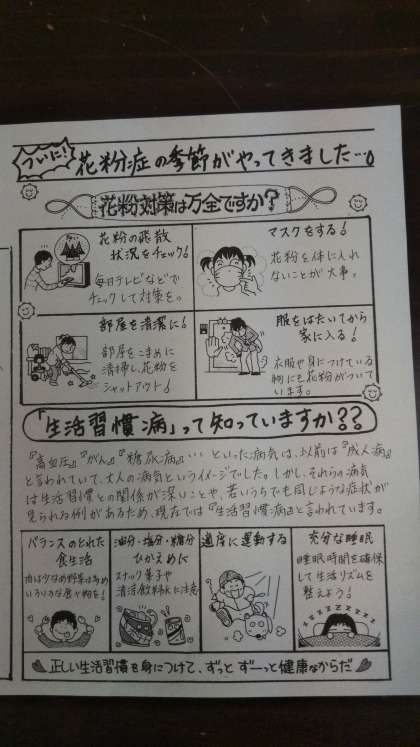 ついに!
花粉症の季節がやってきました…。
花粉対策は万全ですか?
花粉の飛散
状況をチェック!
毎日テレビなどで
チェックして対策を。
マスクをする!
花粉を体に入れ
ないことが大事。
部屋を清潔に!
部屋をこまめに
清掃し、花粉を
シャットアウト!
服をはたいてから
家に入る!
衣服や身につけている
物にも花粉がついて
います。
「生活習慣病」って知っていますか??
『高血圧』『がん』『糖尿病』…といった病気は、以前は『成人病』
と言われていて、大人の病気というイメージでした。しかし、それらの病気
は生活習慣との関係が深いことや、若いうちでも同じような症状が
見られる例があるため、現在では『生活習慣病』と言われています。
バランスのとれた
食生活
肉は少なめ野菜は多め
いろいろな食べ物を!
油分・塩分・糖分
ひかえめに
スナック菓子や
清涼飲料水に注意
適度に運動する
充分な睡眠
睡眠時間を確保
して生活リズムを
整えよう!
ZZZZZZZZ
正しい生活習慣を身につけて、ずっとずーっと健康なからだ